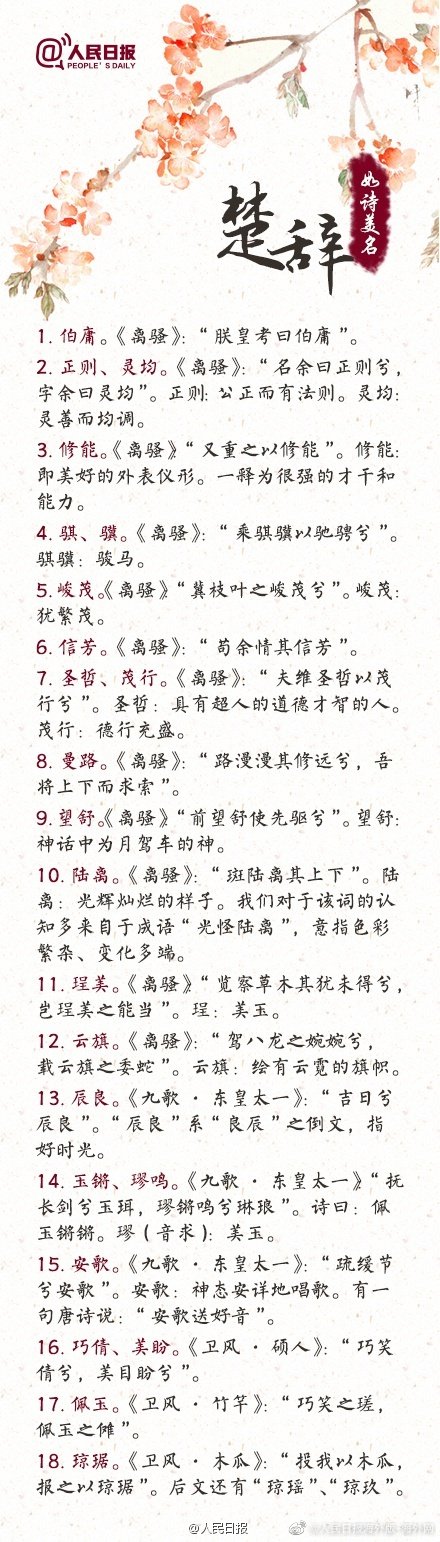 @人民日报
PEOPLE'S DAILY
楚辞
如诗美名
1. 伯庸。《离骚》：“朕皇考曰伯庸”。
2. 正则、灵均。《离骚》：“名余曰正则兮，
字余曰灵均”。正则：公正而有法则。灵均：
灵善而均调。
3. 修能。《离骚》“又重之以修能”。修能：
即美好的外表仪形。一释为很强的才干和
能力。
4. 骐、骥。《离骚》：“乘骐骥以驰骋兮”。
骐骥：骏马。
5. 峻茂。《离骚》“冀枝叶之峻茂兮”。峻茂：
犹繁茂。
6. 信芳。《离骚》：“苟余情其信芳”。
7. 圣哲、茂行。《离骚》：“夫维圣哲以茂
行兮”。圣哲：具有超人的道德才智的人。
茂行：德行充盛。
8. 曼路。《离骚》：“路漫漫其修远兮，吾
将上下而求索”。
9. 望舒。《离骚》“前望舒使先驱兮”。望舒：
神话中为月驾车的神。
10. 陆离。《离骚》：“斑陆离其上下”。陆
离：光辉灿烂的样子。我们对于该词的认
知多来自于成语“光怪陆离”，意指色彩
繁杂、变化多端。
11. 珵美。《离骚》“览察草木其犹未得兮，
岂珵美之能当”。珵：美玉。
12. 云旗。《离骚》：“驾八龙之婉婉兮，
载云旗之委蛇”。云旗：绘有云霓的旗帜。
13. 辰良。《九歌·东皇太一》：“吉日兮
辰良”。“辰良”系“良辰”之倒文，指
好时光。
14. 玉锵、璆鸣。《九歌·东皇太一》“抚
长剑兮玉珥，璆锵鸣兮琳琅”。诗曰：佩
玉锵锵。璆（音求）：美玉。
15. 安歌。《九歌·东皇太一》：“疏缓节
兮安歌”。安歌：神态安详地唱歌。有一
句唐诗说：“安歌送好音”。
16. 巧倩、美盼。《卫风·硕人》：“巧笑
倩兮，美目盼兮”。
17. 佩玉。《卫风·竹竿》：“巧笑之瑳，
佩玉之傩”。
18. 琼琚。《卫风·木瓜》：“投我以木瓜，
报之以琼琚”。后文还有“琼瑶”、“琼玖”。
@人民日报
@人民日报海外版-海外网